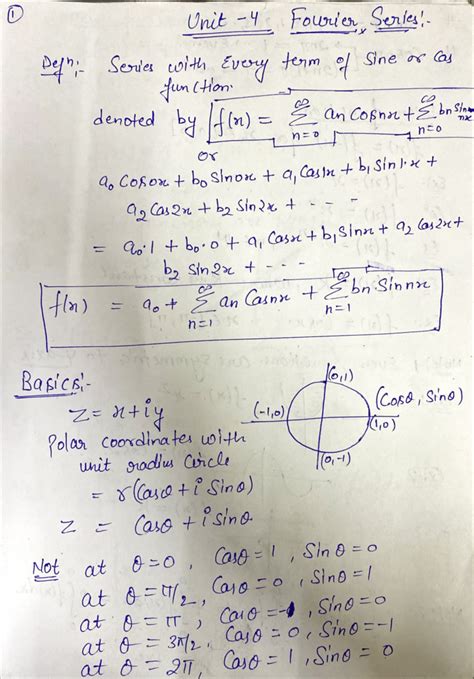 ①
Unit - 4 Fourier Series:-
Defn:- Series with Every term of Sine or Cos
function.
denoted by f(x) = ∞∑n=0 an Cosnx + ∞∑n=0 bn Sinnx
or
a₀ Cos0x + b₀ Sin0x + a₁ Cos1x + b₁ Sin1.x +
a₂ Cos2x + b₂ Sin2x + - - -
= a₀.1 + b₀.0 + a₁ Cosx + b₁ Sinx + a₂ Cos2x +
b₂ Sin2x + - - -
f(x) = a₀ + ∞∑n=1 an Cosnx + ∞∑n=1 bn Sinnx
Basics:-
(0,1)
z = x + iy
(-1,0)
(Cosθ, Sinθ)
(1,0)
Polar coordinates with
(0,-1)
unit radius circle
= r(Cosθ + i Sinθ)
z = Cosθ + i Sinθ.
Not at θ = 0, Cosθ = 1, Sinθ = 0
at θ = π/2, Cosθ = 0, Sinθ = 1
at θ = π, Cosθ = -1, Sinθ = 0
at θ = 3π/2, Cosθ = 0, Sinθ = -1
at θ = 2π, Cosθ = 1, Sinθ = 0